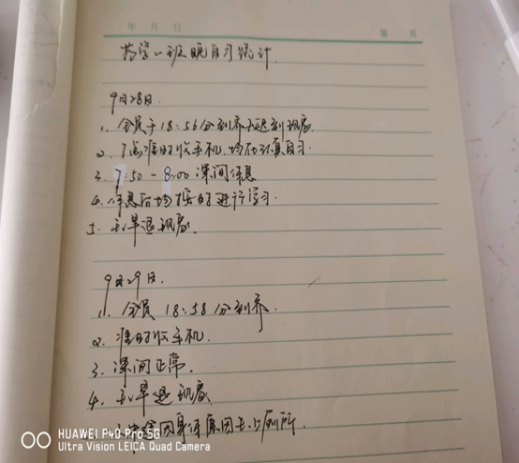 年 月 日 第 页
药学一班晚自习统计
9月28日
1、全员于18:56分到齐无迟到现象.
2、7点准时收手机,均在认真自习
3、7:50-8:00课间休息
4、休息后均按时进行学习.
5、无早退现象.
9月29日.
1、全员18:58分到齐.
2、准时收手机.
3、课间正常.
4、无早退现象
因身体原因去上厕所.
HUAWEI P40 Pro 5G
Ultra Vision LEICA Quad Camera